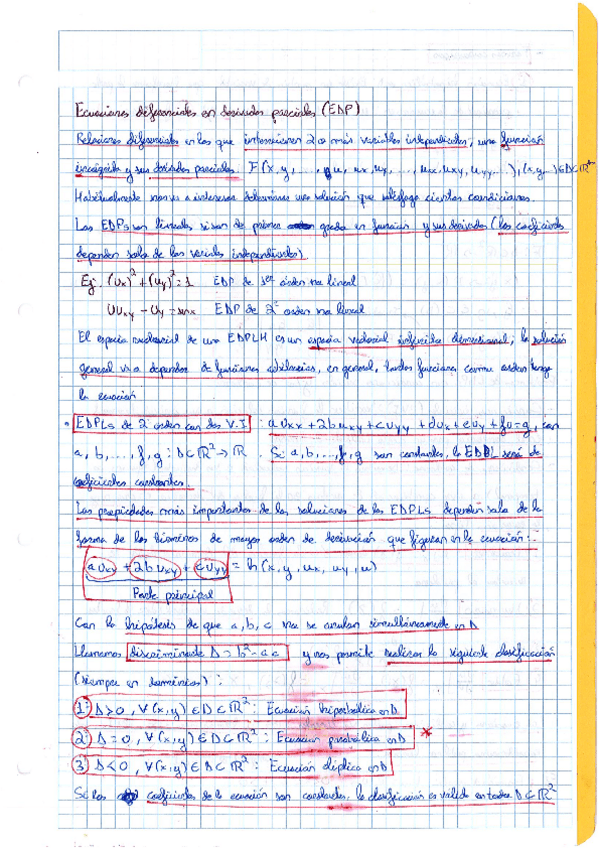 Ecuaciones diferenciales en derivadas parciales (EDP)
Relaciones diferenciales en las que intervienen 2 o más variables independientes, una función
incógnita y sus derivadas parciales. F(x,y,...,u, ux, uy,..., uxx, uxy, uyy...), (x,y...)∈D⊂ℝⁿ
Habitualmente nos va a interesar determinar una solución que satisfaga ciertas condiciones.
Las EDPs son lineales si son de primer grado en función y sus derivadas (los coeficientes
dependen solo de las variables independientes)
Ej: (ux)² + (uy)² = 1 EDP de 1er orden no lineal
UUxy - Uy = senx EDP de 2º orden no lineal
El espacio vectorial de una EDPLH es un espacio vectorial infinito dimensional, la solución
general va a depender de funciones arbitrarias, en general, tantas funciones como orden tenga
la ecuación
• EDPLs de 2º orden con dos V.I : a uxx + 2b uxy + c uyy + d ux + e uy + f u = g, con
a, b, ..., f, g : D⊂ℝ² → ℝ. Si a, b, ..., f, g son constantes, la EDPL será de
coeficientes constantes.
Las propiedades más importantes de las soluciones de las EDPLs dependen solo de la
forma de los términos de mayor orden de derivación que figuran en la ecuación:
a uxx + 2b uxy + c uyy = h(x, y, ux, uy, u)
Parte principal
Con la hipótesis de que a, b, c no se anulan simultáneamente en D
Llamamos discriminante Δ = b² - ac y nos permite realizar la siguiente clasificación
(siempre en dominios) :
1º Δ>0, ∀(x,y)∈D⊂ℝ² : Ecuación hiperbólica en D
2º Δ=0, ∀(x,y)∈D⊂ℝ² : Ecuación parabólica en D *
3º Δ<0, ∀(x,y)∈D⊂ℝ² : Ecuación elíptica en D
Si los coeficientes de la ecuación son constantes, la clasificación es válida en todo D⊂ℝ²